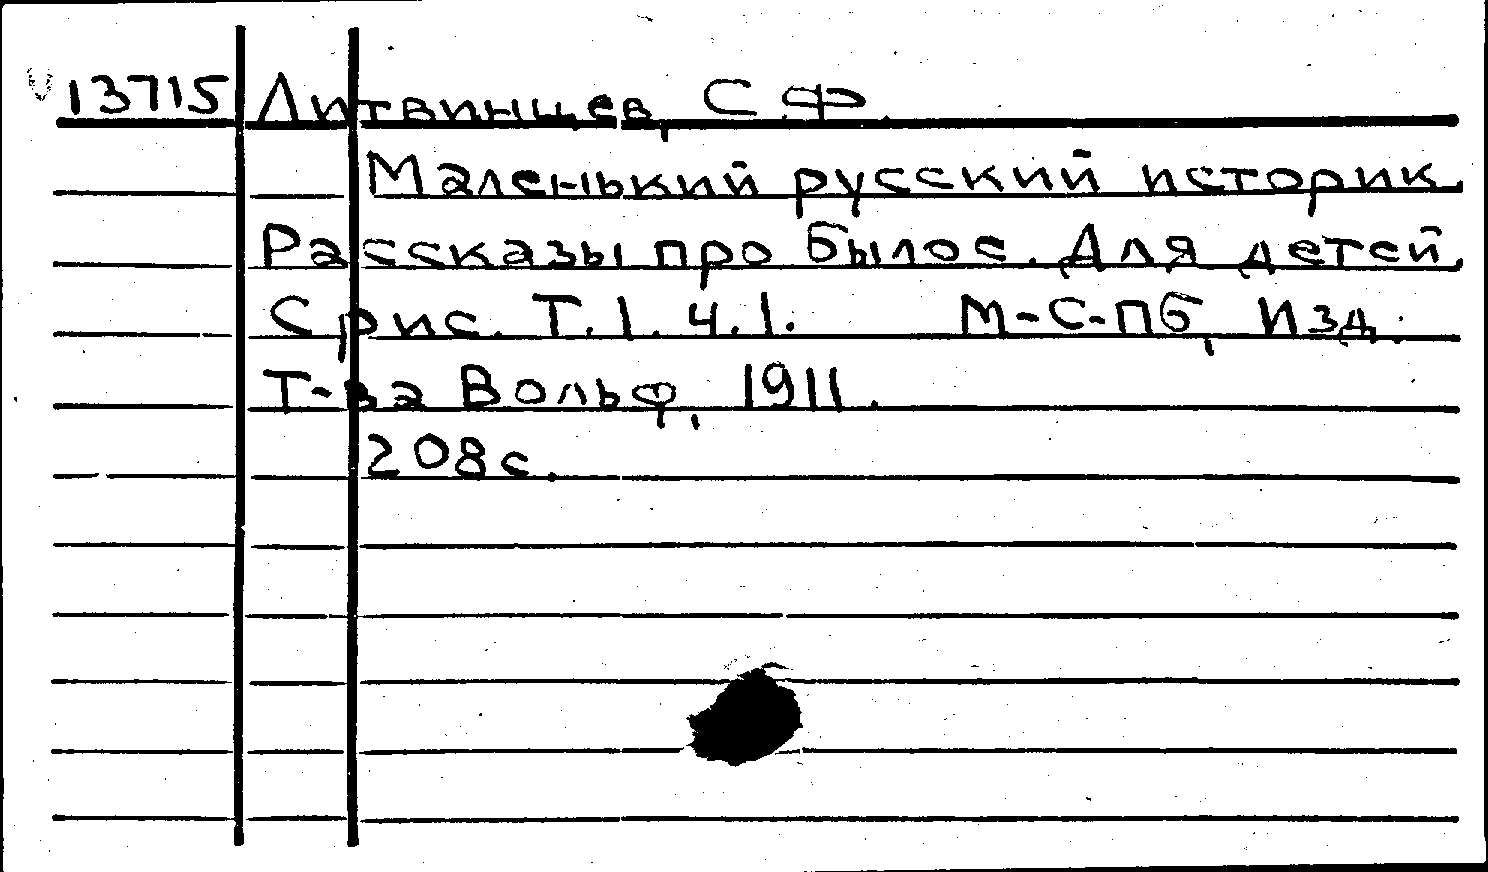 13715 Литвинцев, С.Ф.
Маленький русский историк.
Рассказы про былое. Для детей.
С рис. Т.1. Ч.1. М-С-Пб, Изд.
Т-ва Вольф, 1911.
208с.